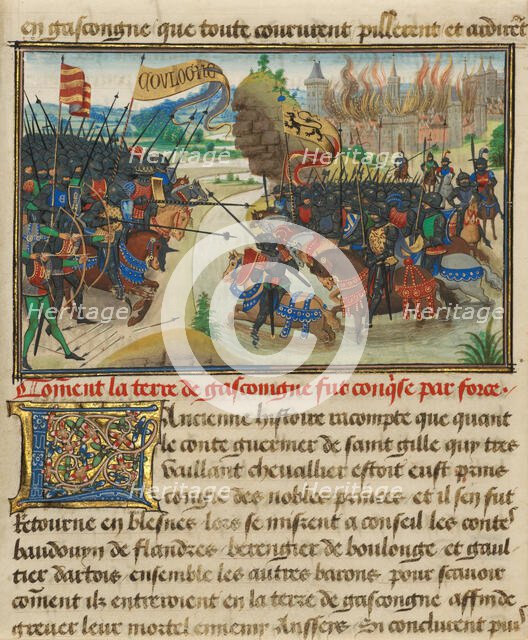 en gascongne que toute coururent pillerent et ardirent
Comment la terre de gascoingne fut conq̃se par force
L'Ancienne histoire racompte que quant
le conte guermer de saint gille quy tres
vaillant chevallier estoit eust prins
congie des nobles princes et il sen fut
retourne en blesnes lors se mirent a conseil les conte
baudouyn de flandres berengier de boulongne et gaul
tier dartois ensemble les autres barons pour scavoir
cõment ilz entreroient en la terre de gascoingne affin de
grever leur mortel ennemy Si conclurent
heritage
Heritage
Heritage
Heritage
Heritage
Heritage
Heritage